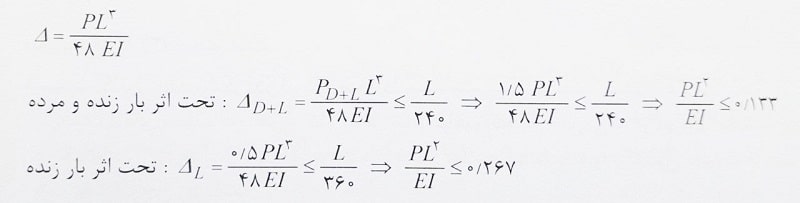 Δ = PL^۳ / ۴۸ EI
تحت اثر بار زنده و مرده : Δ_{D+L} = P_{D+L} L^۳ / ۴۸ EI ≤ L / ۲۴۰ ⇒ ۱/۵ PL^۳ / ۴۸ EI ≤ L / ۲۴۰ ⇒ PL^۲ / EI ≤ ۰/۱۳۳
تحت اثر بار زنده : Δ_L = ۰/۵ PL^۳ / ۴۸ EI ≤ L / ۳۶۰ ⇒ PL^۲ / EI ≤ ۰/۲۶۷